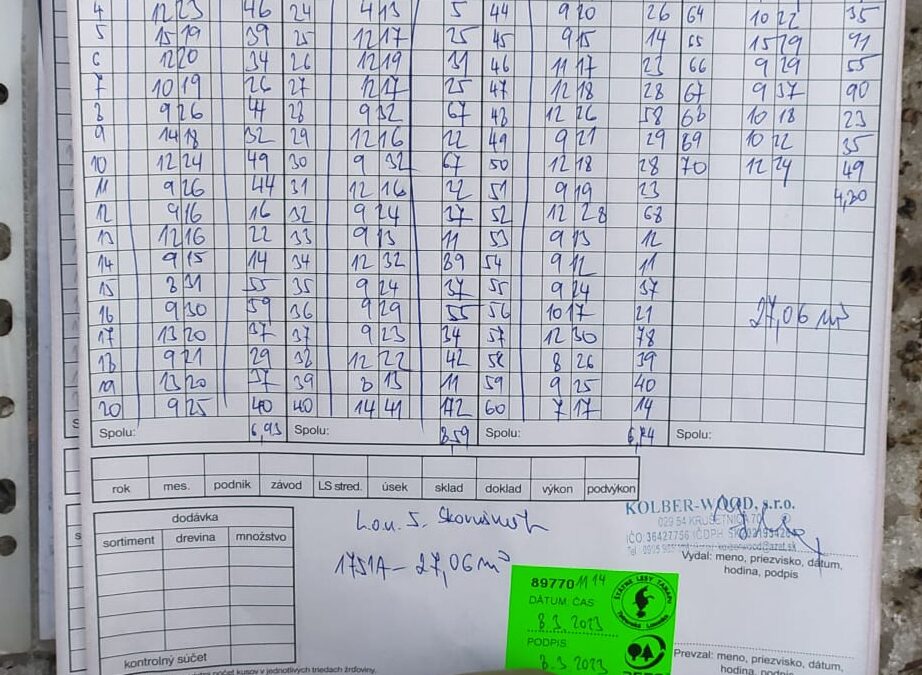 4 12 23 46 24 4 13 5 44 9 20 26 64 10 22 35
5 15 19 39 25 12 17 25 45 9 15 14 65 15 29 91
6 12 20 34 26 12 19 31 46 11 17 23 66 9 29 55
7 10 19 26 27 12 17 25 47 12 18 28 67 9 37 90
8 9 26 44 28 9 32 67 48 12 26 58 68 10 18 23
9 14 18 32 29 12 16 22 49 9 21 29 69 10 22 35
10 12 24 49 30 9 32 67 50 12 18 28 70 12 24 49
11 9 26 44 31 12 16 22 51 9 19 23 4,20
12 9 16 16 32 9 24 37 52 12 28 68
13 12 16 22 33 9 13 11 53 9 13 12
14 9 15 14 34 12 32 89 54 9 12 11
15 8 31 55 35 9 24 37 55 9 24 37
16 9 30 59 36 9 29 55 56 10 17 21 27,06 m³
17 13 20 37 37 9 23 34 57 12 30 78
18 9 21 29 38 12 22 42 58 8 26 39
19 13 20 37 39 8 13 11 59 9 25 40
20 9 25 40 40 14 41 172 60 7 17 14
Spolu: 6,93 Spolu: 8,59 Spolu: Spolu:
rok mes. podnik závod LS stred. úsek sklad doklad výkon podvýkon
dodávka
sortiment drevina množstvo
kontrolný súčet
1751A - 27,06 m³
KOLBER-WOOD, s.r.o.
029 54 KRUŠETNICA 70
IČO: 36427756
Vydal: meno, priezvisko, dátum,
hodina, podpis
89770 11 14
DÁTUM, ČAS
8.3.2023
PODPIS
8.3.2023
ŠTÁTNE LESY TANAPU
Prevzal: meno, priezvisko, dátum,
hodina, podpis
počet kusov v jednotlivých triedach žrďoviny.